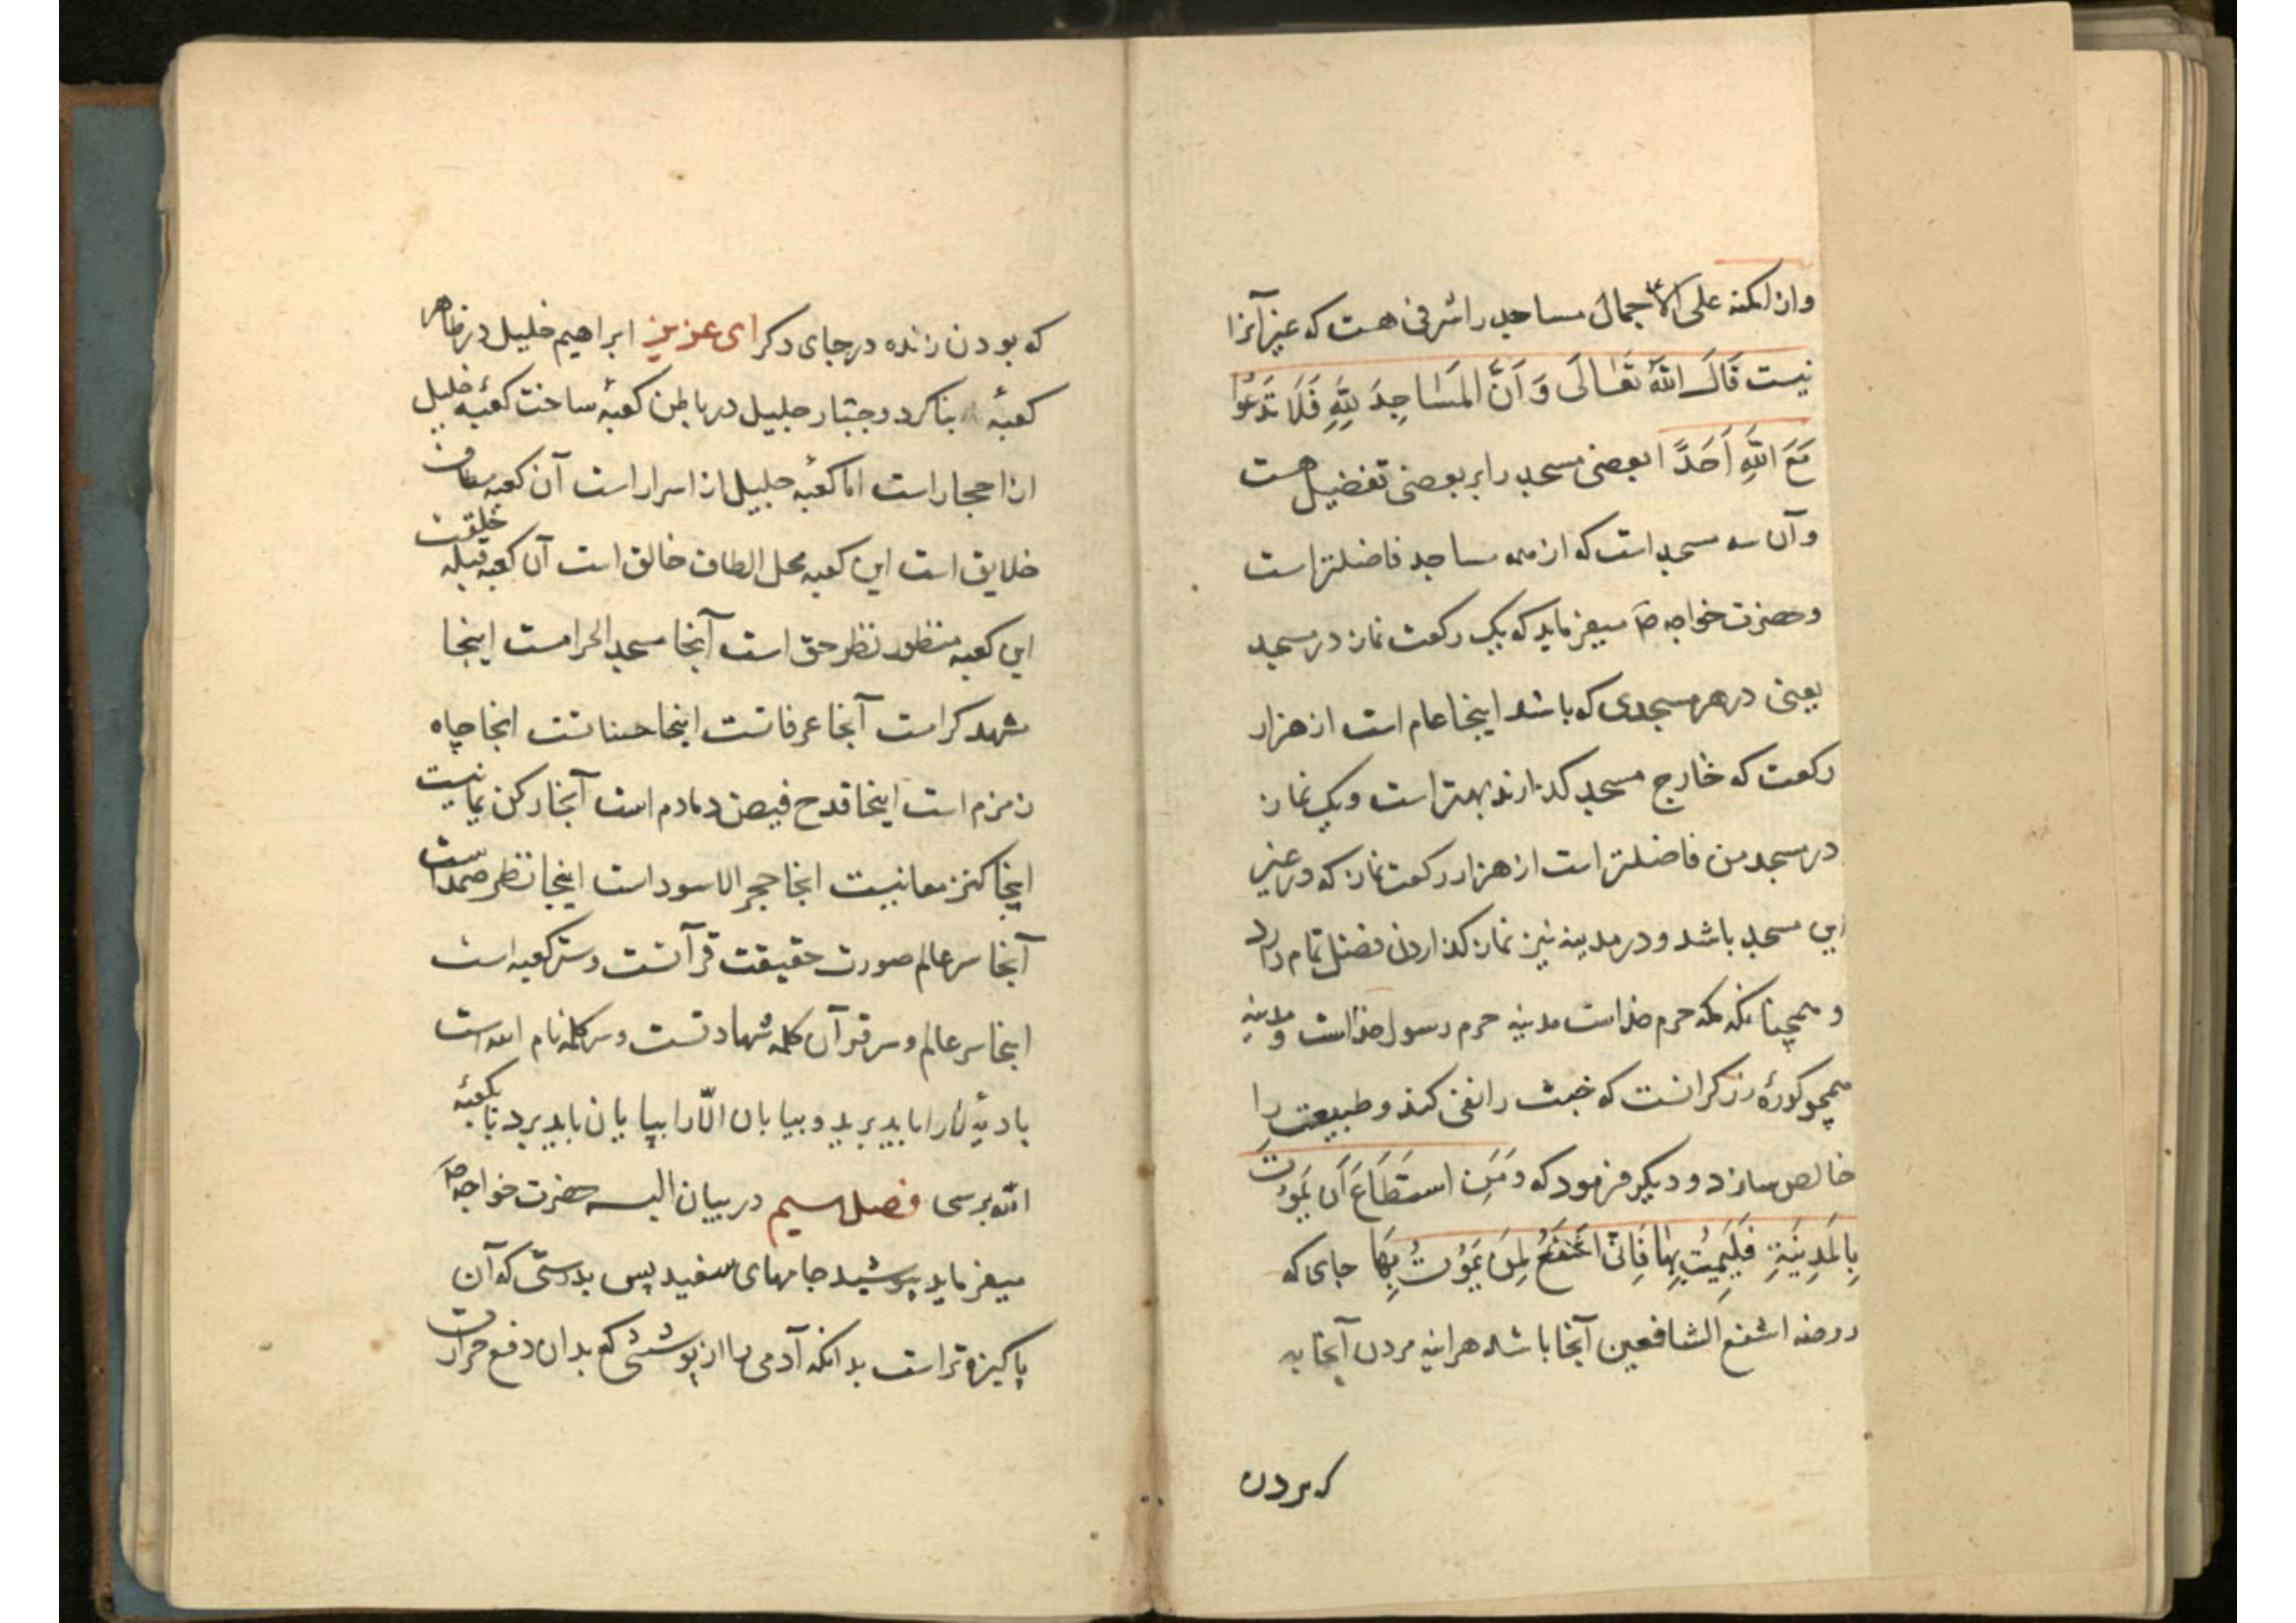 واز امکنه علی الاجمال مساجد را شرفی هست که غیر آنرا
نیست قَالَ اللهُ تَعَالَی وَ اَنَّ المَسَاجِدَ لِلّٰهِ فَلَا تَدْعُوا
مَعَ اللّٰهِ اَحَدًا بعضی مسجد را بر بعضی تفضیل هست
و آن سه مسجد است که از همه مساجد فاضلتر است
و حضرت خواجه صم میفرماید که یک رکعت نماز در مسجد
یعنی در هر مسجدی که باشد اینجا عام است از هزار
رکعت که خارج مسجد کذارند بهتر است و یک نماز
در مسجد من فاضلتر است از هزار رکعت نماز که در غیر
این مسجد باشد و در مدینه نیز نماز کذاردن فضل تمام دارد
و همچنانکه مکه حرم خداست مدینه حرم رسول خداست و مدینه
همچو کورهٔ زرکرانست که خبث را نفی کند و طبیعت را
خالص سازد و دیکر فرمود که وَ مَنِ اسْتَطَاعَ اَن یَمُوْتَ
بِالمَدِیْنَةِ فَلیَمُتْ بِهَا فَاِنّی اَشْفَعُ لِمَن یَمُوْتُ بِهَا جای که
روضه اشفع الشافعین آنجا باشد هراینه مردن آنجا به
که بردن
که بودن زنده در جای دکر ای عزیز ابراهیم خلیل در ظاهر
کعبهٔ بنا کرد و جبّار جلیل در باطن کعبهٔ ساخت کعبهٔ خلیل
از احجار است اما کعبهٔ جلیل از اسرار است آن کعبه مطاف
خلایق است این کعبه محل الطاف خالق است آن کعبه قبله خلقت
این کعبه منظور نظر حق است آنجا مسجد الحرامست اینجا
مشهد کرامت آنجا عرفاتست اینجا حسناتست انجا چاه
زمزم است اینجا قدح فیض دمادم است آنجا رکن یمانیست
اینجا کنز معانیست انجا حجر الاسود است اینجا نظر صمد است
آنجا سر عالم صورت حقیقت قرآنست و سر کعبه است
اینجا سر عالم و سر قرآن کلمه شهادتست و سر کلمه نام الله است
بادیهٔ لا را باید برید و بیابان الّا را بپایان باید برد تا بکعبهٔ
الله برسی فصل سیم در بیان البسه حضرت خواجه صم
میفرماید بپوشید جامهای سفید پس بدرستی که آن
پاکیزه‌تر است بدانکه آدمی را از پوششی که بدان دفع حرارت